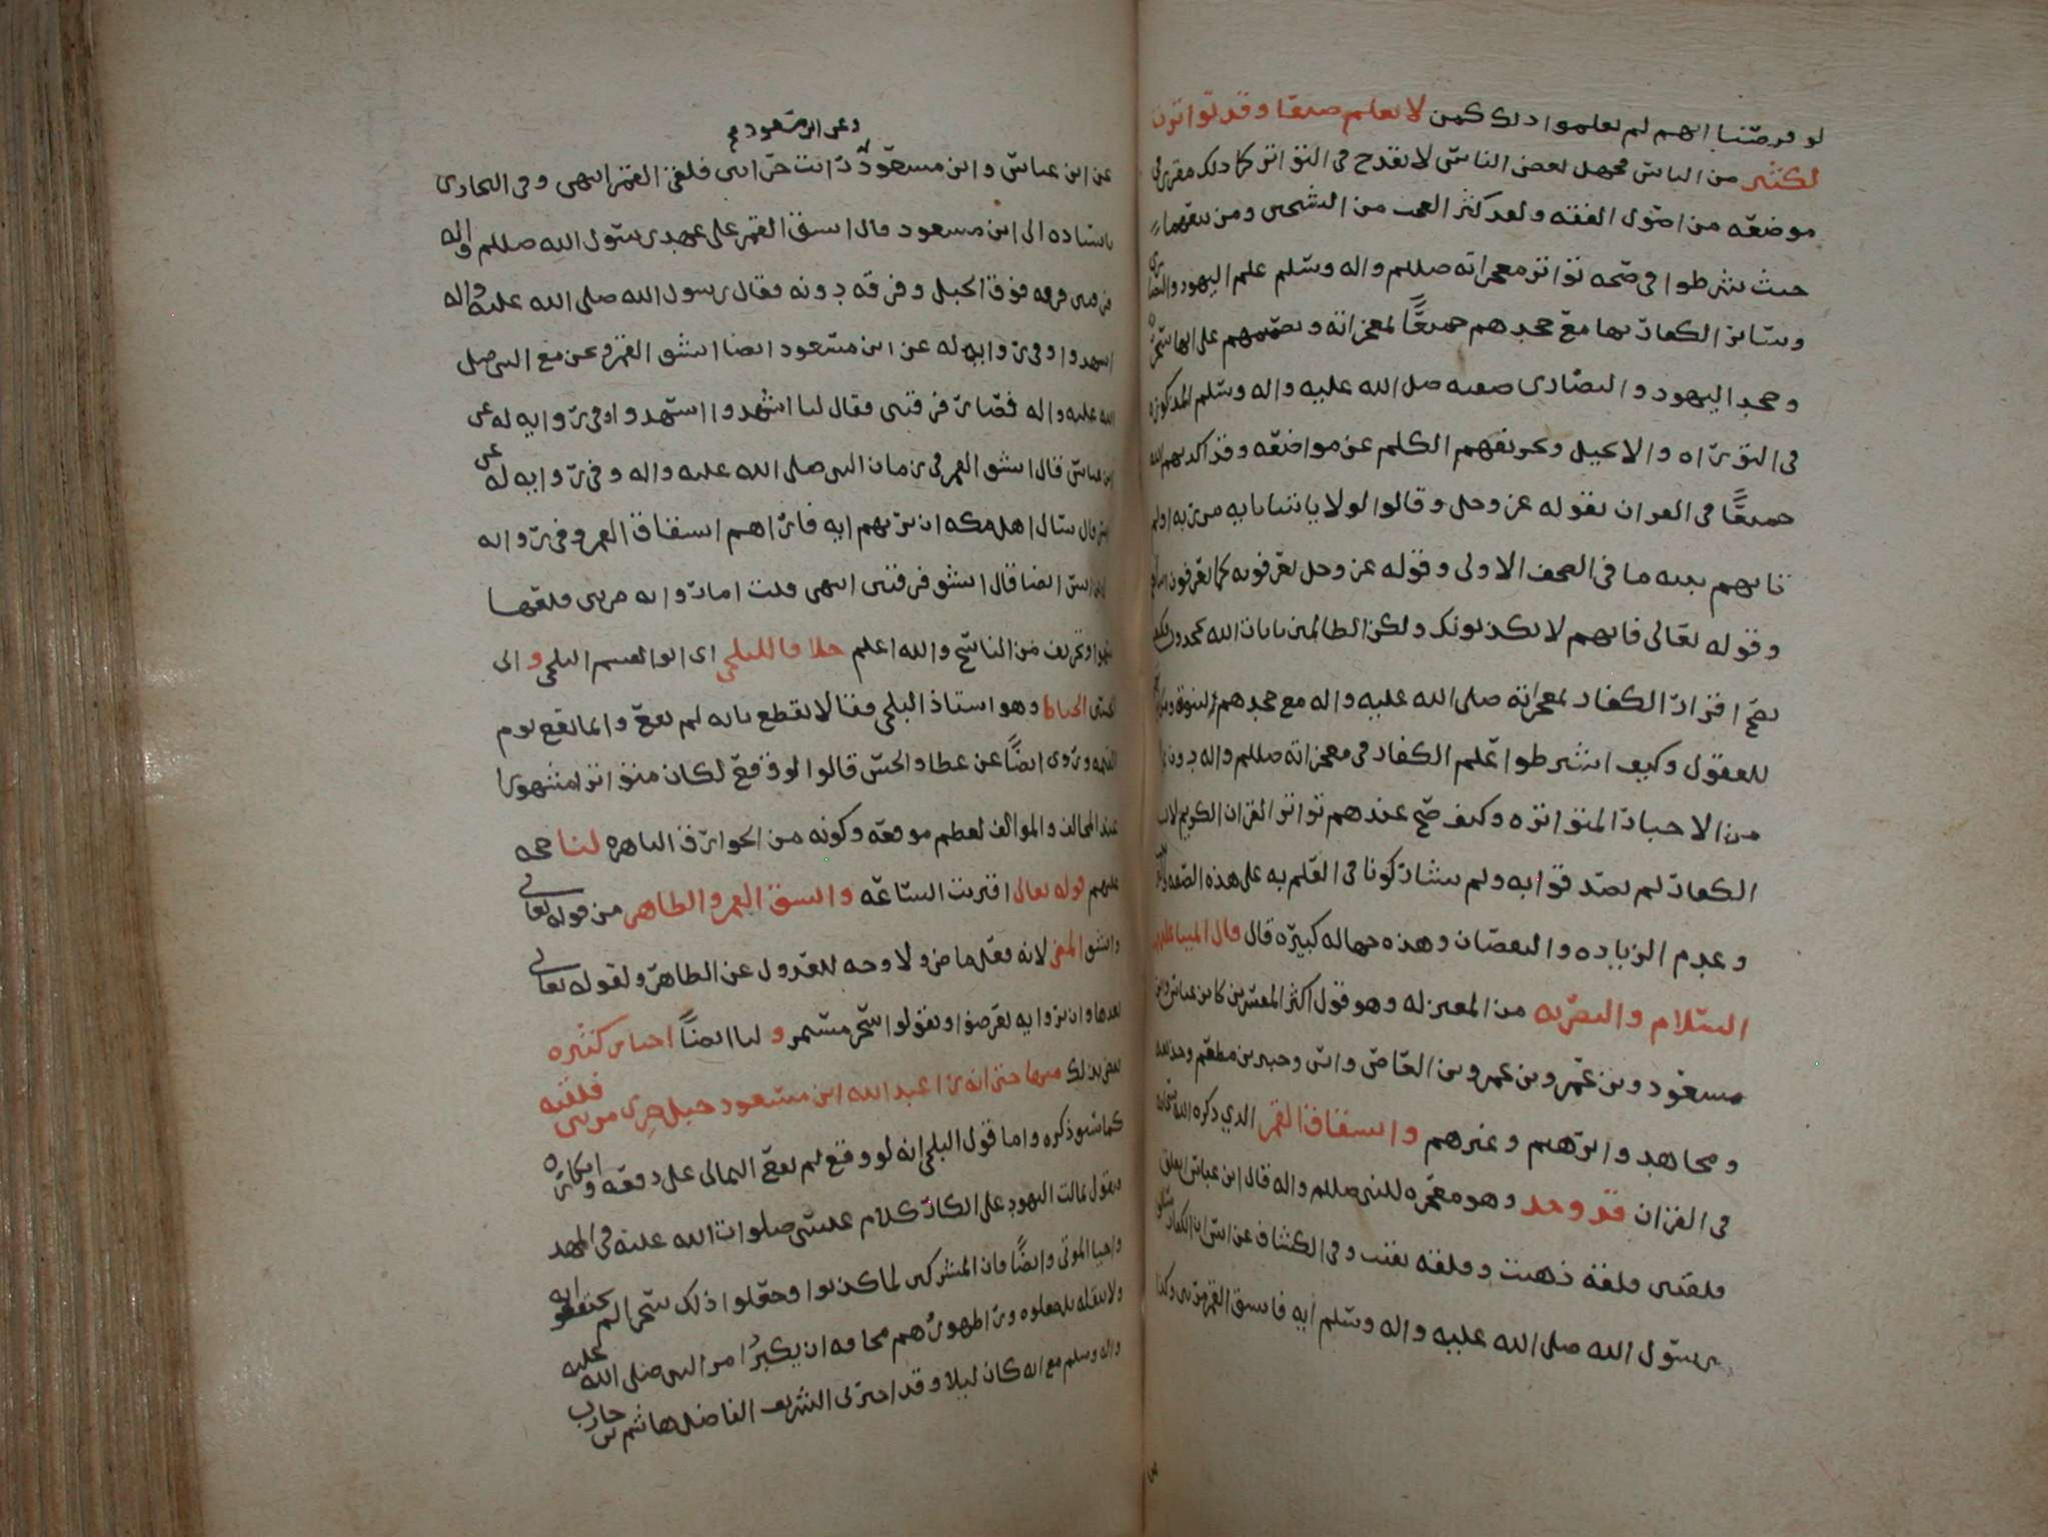 لو فرضنا انهم لم يعلموا ذلك كمن لا يعلم صنعا وقد تواترت
لكثير من الناس فجهل بعض الناس لا يقدح في التواتر كما ذلك مقرر في
موضعه من اصول الفقه ولقد كثر العجب من الشيخين ومن تبعهما
حيث شرطوا في صحه تواتر معجزاته صللم واله وسلم علم اليهود والنصارى
وساير الكفار بها مع جحدهم جميعًا لمعجزاته وتصميمهم على انها سحر
وجحد اليهود والنصارى صفته صلى الله عليه واله وسلم المذكوره
في التوراه والانجيل وتحريفهم الكلم عن مواضعه وقد اكذبهم الله
جميعًا في القران بقوله عز وجل وقالوا لولا ياتينا بايه من ربه اولم
تاتهم بينه ما في الصحف الاولى وقوله عز وجل يعرفونه كما يعرفون ابناءهم
وقوله تعالى فانهم لا يكذبونك ولكن الظالمين بايات الله يجحدون فكيف
يصح اقرار الكفار بمعجزاته صلى الله عليه واله مع جحدهم لنبوته
للعقول وكيف اشترطوا علم الكفار في معجزاته صللم واله دون
من الاخبار المتواتره وكيف صح عندهم تواتر القران الكريم لان
الكفار لم يصدقوا به ولم يشاركونا في العلم به على هذه الصفه
وعدم الزياده والنقصان وهذه جهاله كبيره قال قال ايمتنا عليهم
السلام والبصريه من المعتزله وهو قول اكثر المفسرين كابن عباس وابن
مسعود وبن عمر وبن عمرو بن العاص وانس وجبير بن مطعم وحذيفه
ومجاهد وابرهيم وغيرهم وانشقاق القمر الذي ذكره الله سبحانه
في القران قد وجد وهو معجزه للنبي صللم واله قال ابن عباس انفلق
فلقتين فلقة ذهبت وفلقه بقيت وفي الكشاف عن انس ان الكفار سالوا
رسول الله صلى الله عليه واله وسلم ايه فانشق القمر مرتين وكذا
وعن ابن مسعود
عن ابن عباس وابن مسعود رايت حرا بين فلقتي القمر انتهى وفي البخاري
باسناده الى ابن مسعود قال انشق القمر على عهد رسول الله صللم واله
فرقتين فرقه فوق الجبل وفرقه دونه فقال رسول الله صلى الله عليه واله
اشهدوا وفي روايه له عن ابن مسعود ايضا انشق القمر ونحن مع النبي صلى
الله عليه واله فصار فرقتين فقال لنا اشهدوا اشهدوا وفي روايه له عن
ابن عباس قال انشق القمر في زمان النبي صلى الله عليه واله وفي روايه له عن
انس قال سال اهل مكه ان يريهم ايه فاراهم انشقاق القمر وفي روايه
عن انس ايضا قال انشق فرقتين انتهى قلت اما روايه مرتين فلعلها
سهوا وتحريف من الناسخ والله اعلم خلافا للبلخي اي ابو القسم البلخي و ابي
الحسين الخياط وهو استاذ البلخي فقالا نقطع بانه لم يقع وانما يقع يوم
القيمه وروي ايضًا عن عطا والحسن قالوا لو وقع لكان متواترا مشهورا
عند المخالف والموالف لعظم موقعه وكونه من الخوارق الباهره لنا حجه
عليهم قوله تعالى اقتربت الساعه وانشق القمر والظاهر من قوله تعالى
وانشق المضي لانه فعل ماض ولا وجه للعدول عن الظاهر ولقوله تعالى
بعدها وان يروا ايه يعرضوا ويقولوا سحر مستمر و لنا ايضًا اخبار كثيره
تقضي بذلك منها حتى انه راى عبد الله ابن مسعود جبل حرى من بين فلقتيه
كما سبق ذكره واما قول البلخي انه لو وقع لم يقع التمالي على دفعه وانكاره
فنقول تمالت اليهود على انكار كلام عيسى صلوات الله عليه في المهد
واحيا الموتى وايضًا فان المشركين لما كذبوا وجعلوا ذلك سحرا لم يحتفلوا به
ولا بنقله بل جعلوه ورا ظهورهم مخافه ان يكبر امر النبي صلى الله عليه
واله وسلم مع انه كان ليلا وقد اخبرني الشريف الفاضل هاشم بن حازب